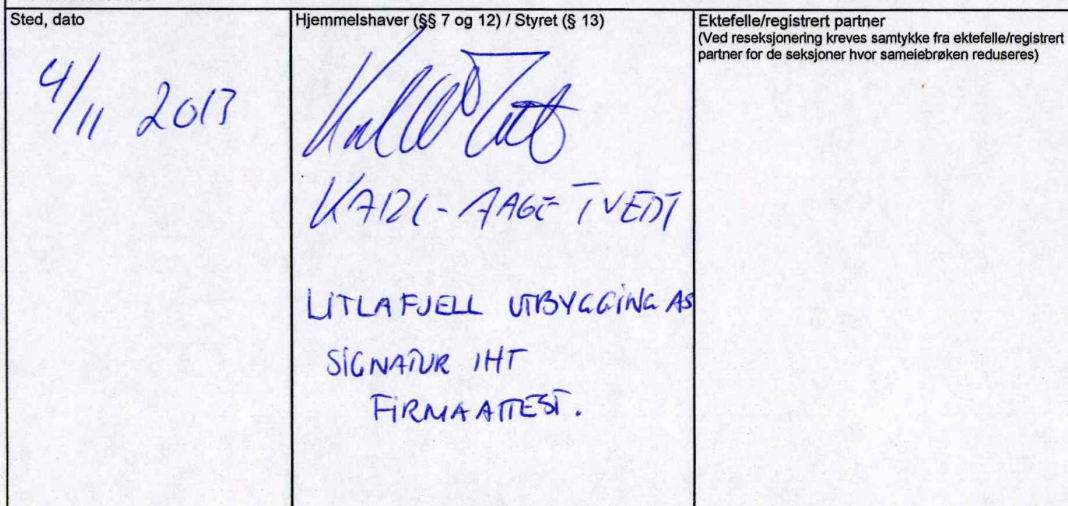 Sted, dato
4/11 2013
Hjemmelshaver (§§ 7 og 12) / Styret (§ 13)
KARL-AAGE TVEDT
LITLAFJELL UTBYGGING AS
SIGNATUR IHT
FIRMAATTEST.
Ektefelle/registrert partner
(Ved reseksjonering kreves samtykke fra ektefelle/registrert
partner for de seksjoner hvor sameiebrøken reduseres)